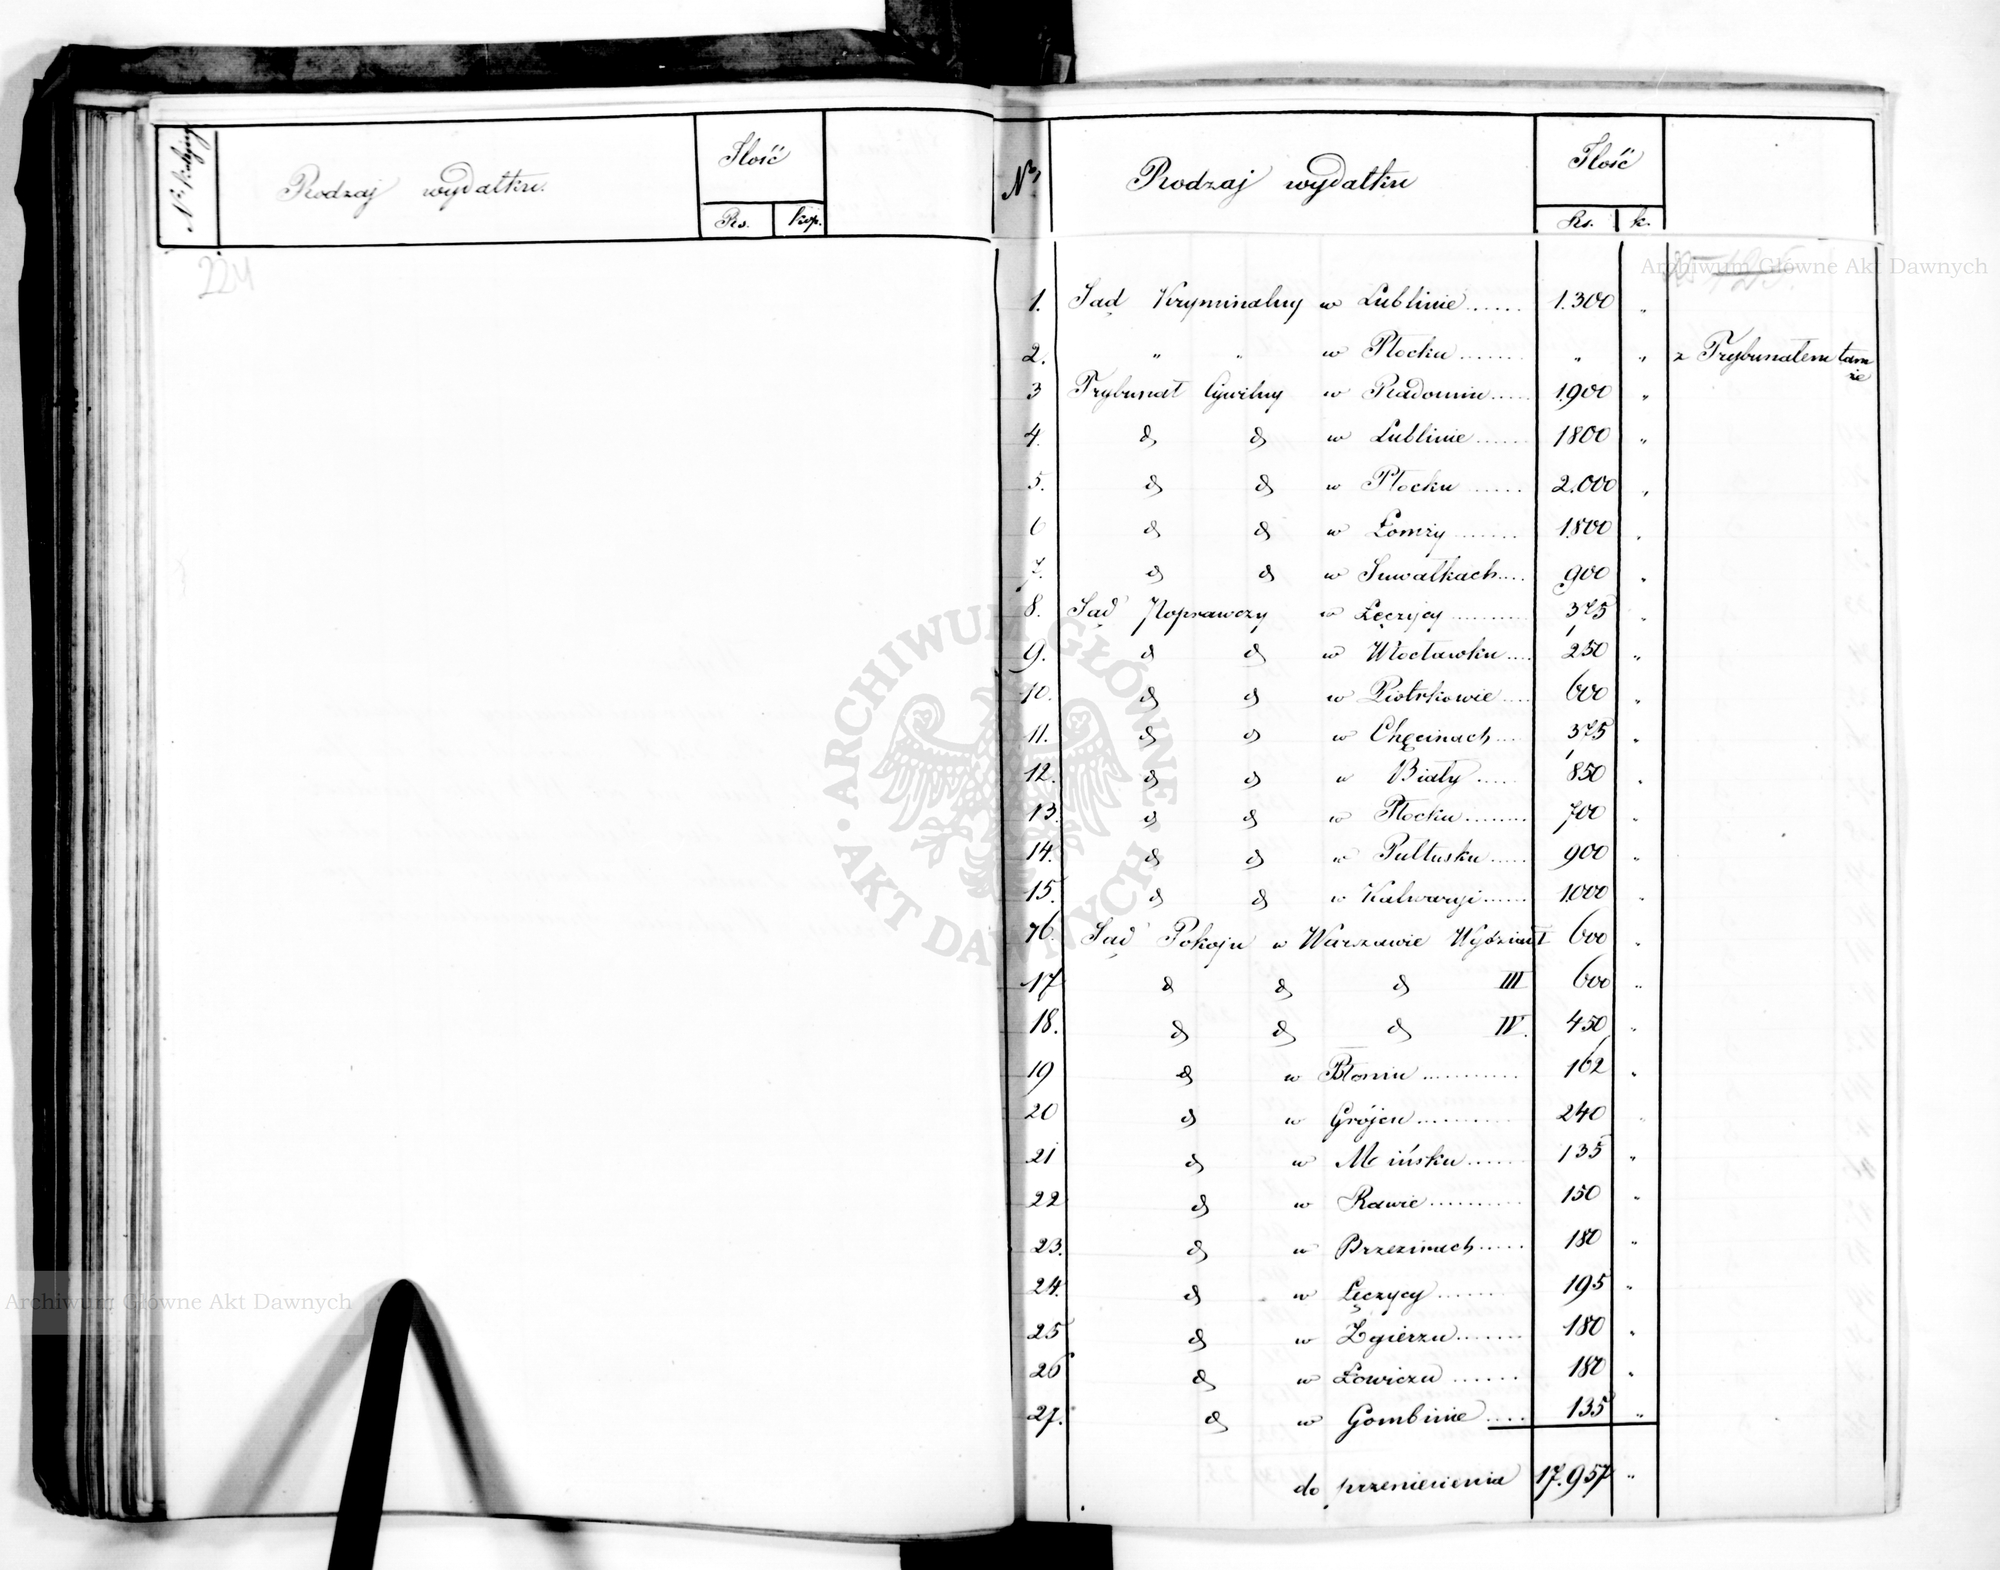 Nr kolejny
Rodzaj wydatku.
Ilość
Rs. kop.
224
Nr
Rodzaj wydatku
Ilość
Rs. k.
1. Sąd Kryminalny w Lublinie...... 1.300 "
2. " " w Płocku....... " " z Trybunałem tam
że
3 Trybunał Cywilny w Radomiu..... 1.900 "
4. d d w Lublinie...... 1800 "
5. d d w Płocku...... 2.000 "
6 d d w Łomży....... 1.800 "
7. d d w Suwałkach.... 900 "
8. Sąd Poprawczy w Łęczycy......... 375 "
9. d d w Włocławku.... 250 "
10. d d w Piotrkowie.... 600 "
11. d d w Chęcinach.... 375 "
12. d d w Biały..... 850 "
13. d d w Płocku........ 700 "
14. d d w Pułtusku..... 900 "
15. d d w Kalwaryi...... 1.000 "
16. Sąd Pokoju w Warszawie Wydział I 600 "
17 d d d III 600 "
18. d d d IV. 450 "
19 d w Błoniu........... 162 "
20 d w Grójcu.......... 240 "
21 d w Mińsku...... 135 "
22 d w Rawie.......... 150 "
23. d w Brzezinach..... 180 "
24. d w Łęczycy....... 195 "
25 d w Zgierzu....... 180 "
26 d w Łowiczu....... 180 "
27. d w Gombinie..... 135 "
do przeniesienia 17.957 "
Archiwum Główne Akt Dawnych
ARCHIWUM GŁÓWNE
AKT DAWNYCH
Archiwum Główne Akt Dawnych